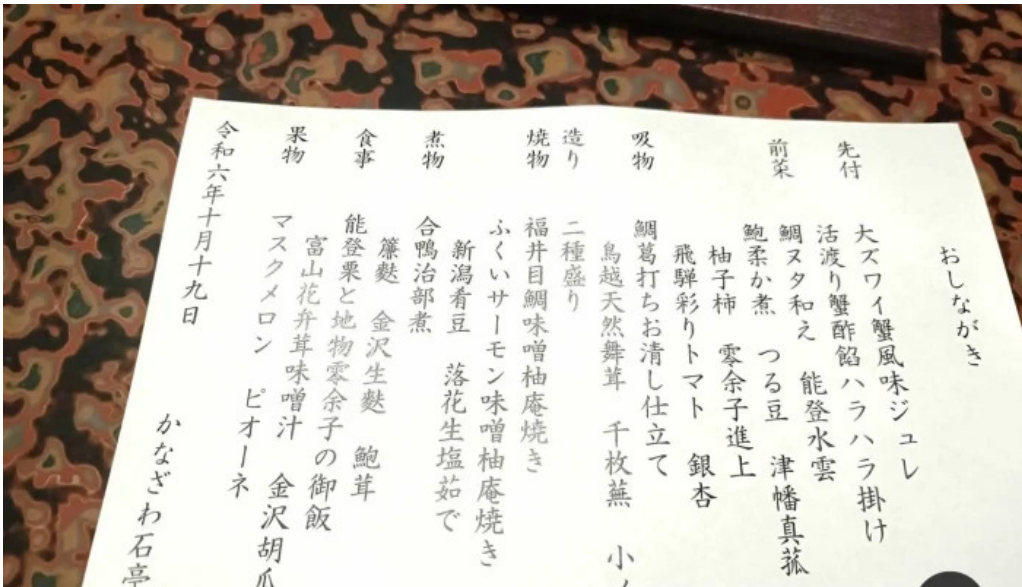 おしながき
先付 大ズワイ蟹風味ジュレ
活渡り蟹酢餡ハラハラ掛け
前菜 鯛ヌタ和え 能登水雲
鮑柔か煮 つる豆 津幡真菰
柚子柿 零余子進上
飛騨彩りトマト 銀杏
吸物 鯛葛打ちお清し仕立て
鳥越天然舞茸 千枚蕪 小
造り 二種盛り
焼物 福井目鯛味噌柚庵焼き
ふくいサーモン味噌柚庵焼き
新潟肴豆 落花生塩茹で
煮物 合鴨治部煮
簾麩 金沢生麩 鮑茸
食事 能登栗と地物零余子の御飯
富山花弁茸味噌汁 金沢胡瓜
果物 マスクメロン ピオーネ
令和六年十月十九日
かなざわ石亭